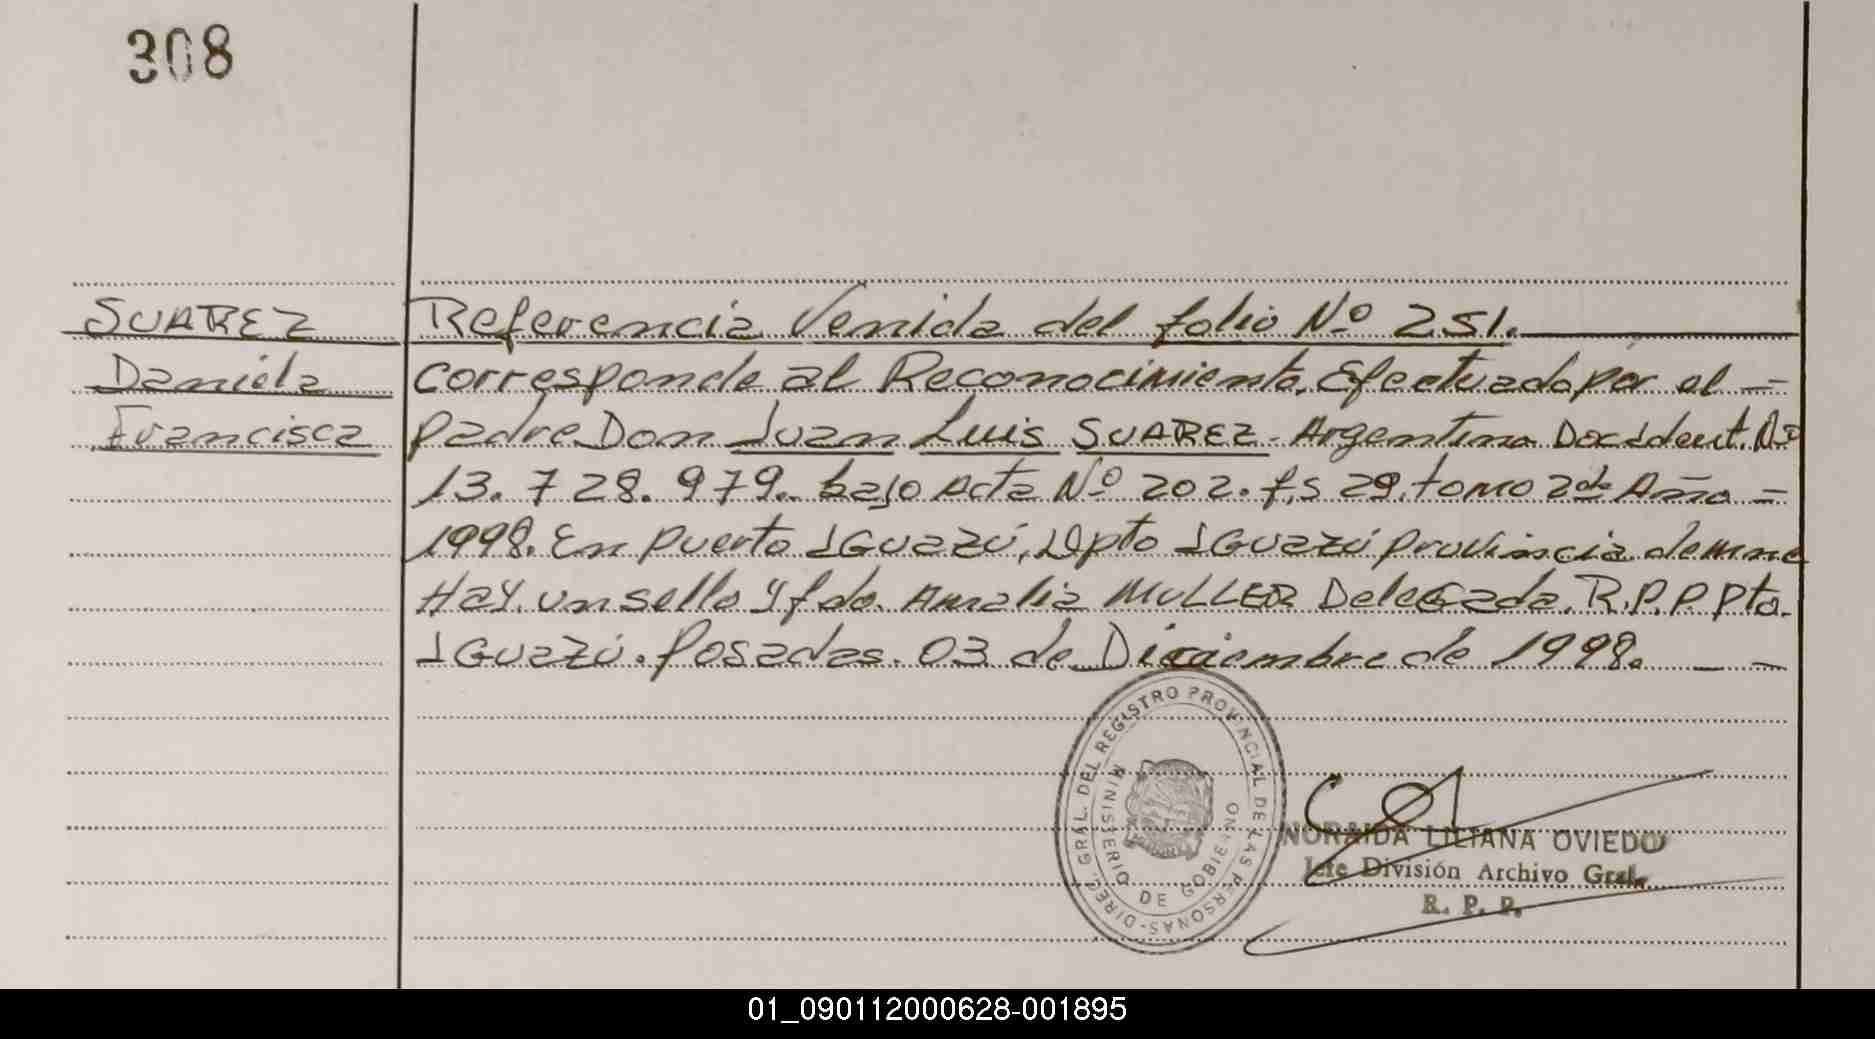 308
SUAREZ
Daniela
Francisca
Referencia Venida del folio Nº 251.
Corresponde al Reconocimiento, Efectuado por el —
padre Don Juan Luis SUAREZ - Argentino Doc Ident. Nº
13.728.979. bajo Acta Nº 202. fs 29. tomo 2do Año =
1998. En puerto IGuazú, Dpto IGuazú provincia de mnes
HaY un sello Y fdo. Amalia MULLER DeleGada. R.P.P. Pto.
IGuazú. Posadas. 03 de Diciembre de 1998. — —
DIREC. GRAL. DEL REGISTRO PROVINCIAL DE LAS PERSONAS-
MINISTERIO DE GOBIERNO
NORAIDA LILIANA OVIEDO
Jefe División Archivo Gral.
R. P. P.
01_090112000628-001895